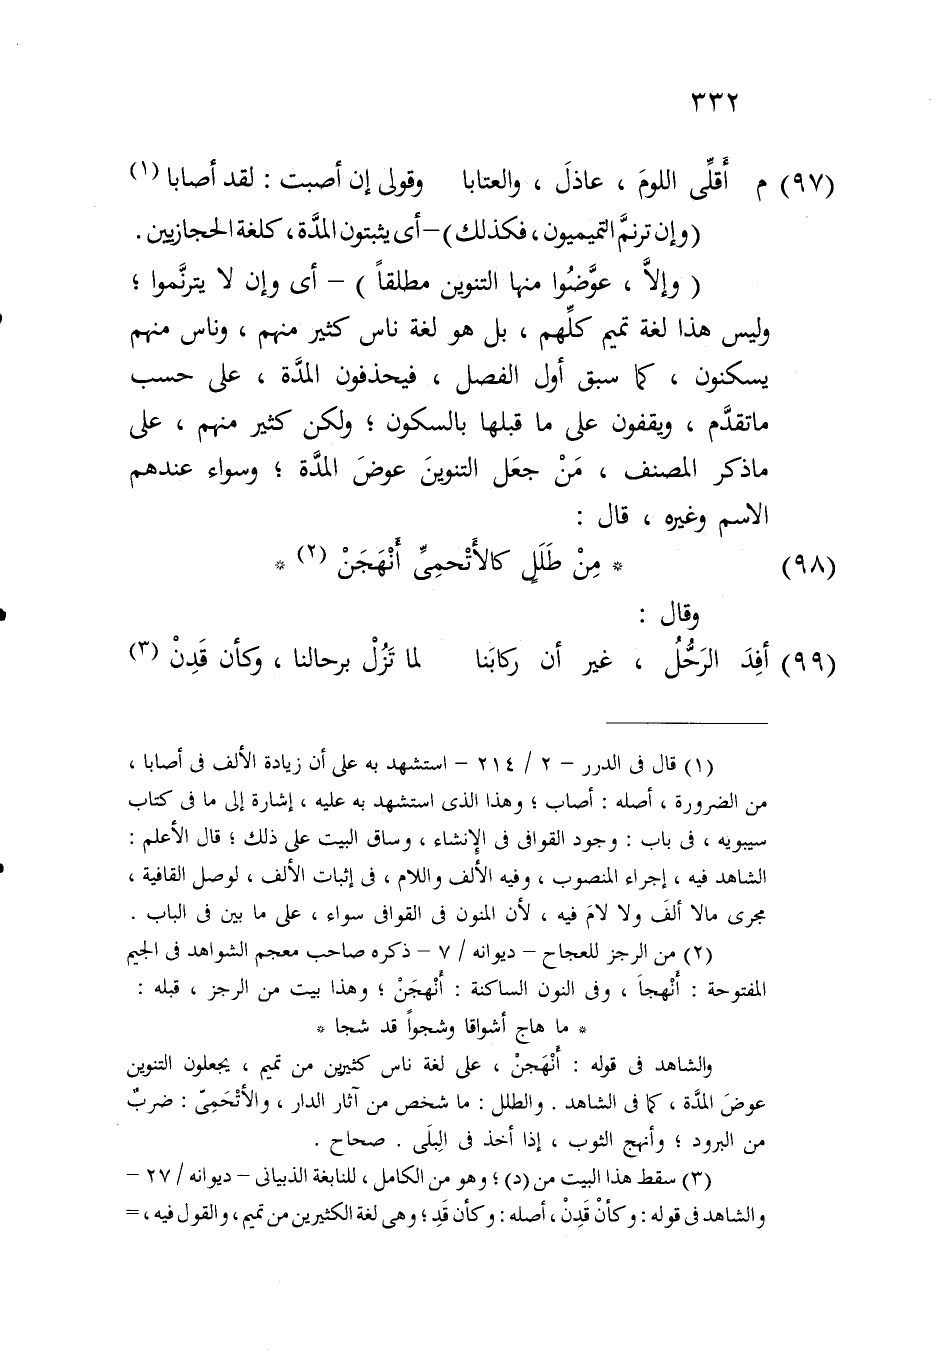 ٣٣٢
(٩٧) م أَقلِّى اللومَ ، عاذلَ ، والعتابا وقولى إن أصبت : لقد أصابا (١)
(وإن ترنمَّ التميميون ، فكذلك) – أى يثبتون المدَّة ، كلغة الحجازيين .
( وإلاَّ ، عوَّضُوا منها التنوين مطلقاً ) – أى وإن لا يترنَّموا ؛
وليس هذا لغة تميم كلِّهم ، بل هو لغة ناس كثير منهم ، وناس منهم
يسكنون ، كما سبق أول الفصل ، فيحذفون المدَّة ، على حسب
ماتقدَّم ، ويقفون على ما قبلها بالسكون ؛ ولكن كثير منهم ، على
ماذكر المصنف ، مَنْ جعَل التنوينَ عوضَ المدَّة ؛ وسواء عندهم
الاسم وغيره ، قال :
(٩٨) * مِنْ طَلَلٍ كالأَتْحمِىِّ أَنْهَجَنْ (٢) *
وقال :
(٩٩) أفِدَ الرَحُّلُ ، غير أن ركابَنا لما تَزُلْ برحالنا ، وكأن قَدِنْ (٣)
(١) قال فى الدرر – ٢ / ٢١٤ – استشهد به على أن زيادة الألف فى أصابا ،
من الضرورة ، أصله : أصاب ؛ وهذا الذى استشهد به عليه ، إشارة إلى ما فى كتاب
سيبويه ، فى باب : وجود القوافى فى الإنشاء ، وساق البيت على ذلك ؛ قال الأعلم :
الشاهد فيه ، إجراء المنصوب ، وفيه الألف واللام ، فى إثبات الألف ، لوصل القافية ،
مجرى مالا ألفَ ولا لامَ فيه ، لأن المنون فى القوافى سواء ، على ما بين فى الباب .
(٢) من الرجز للعجاح – ديوانه / ٧ – ذكره صاحب معجم الشواهد فى الجيم
المفتوحة : أَنْهجاَ ، وفى النون الساكنة : أَنْهجَنْ ؛ وهذا بيت من الرجز ، قبله :
* ما هاج أشواقا وشجواً قد شجا *
والشاهد فى قوله : أَنْهَجنْ ، على لغة ناس كثيرين من تميم ، يجعلون التنوين
عوضَ المدَّة ، كما فى الشاهد . والطلل : ما شخص من آثار الدار ، والأَتْحَمِىّ : ضربٌ
من البرود ؛ وأنهج الثوب ، إذا أخذ فى البِلَى . صحاح .
(٣) سقط هذا البيت من (د) ؛ وهو من الكامل ، للنابغة الذبيانى – ديوانه / ٢٧ –
والشاهد فى قوله : وكأنْ قَدِنْ ، أصله : وكأن قَدِ ؛ وهى لغة الكثيرين من تميم ، والقول فيه ، =